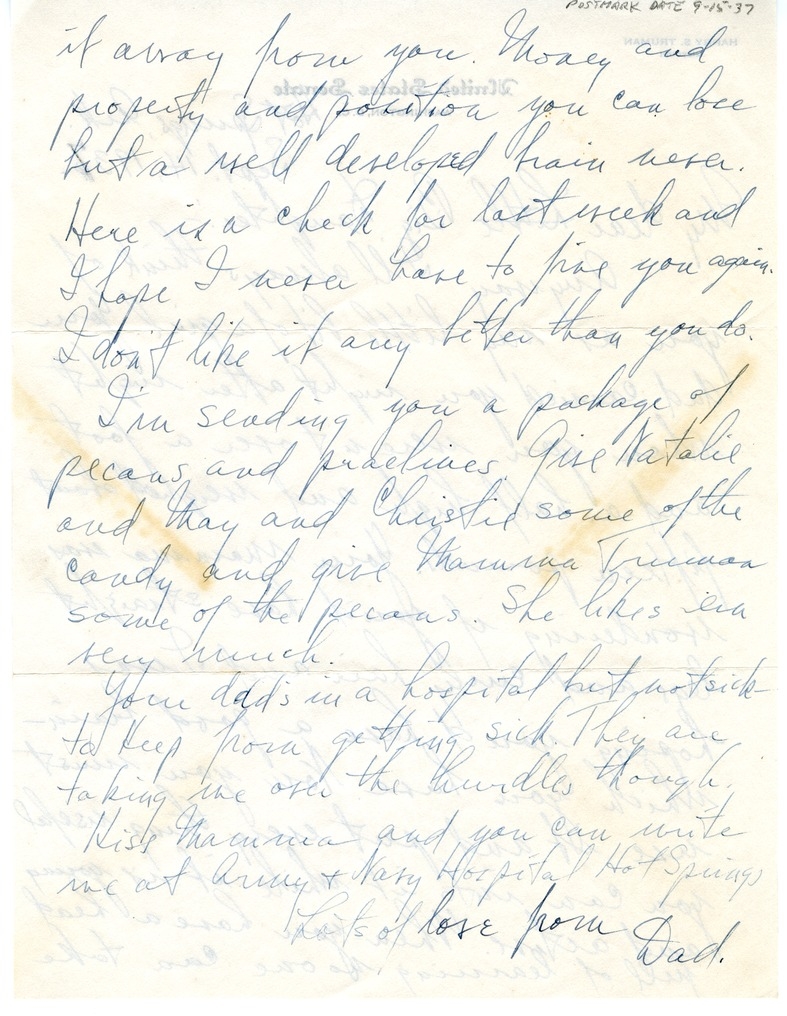 POSTMARK DATE 9-15-37
HARRY S. TRUMAN
United States Senate
it away from you. Money and
property and position you can lose
but a well developed brain never.
Here is a check for last week and
I hope I never have to fine you again.
I don't like it any better than you do.
I'm sending you a package of
pecans and pralines. Give Natalie
and May and Christie some of the
candy and give Mamma Truman
some of the pecans. She likes em
very much.
Your dad's in a hospital but not sick
to keep from getting sick. They are
taking me over the hurdles though.
Kiss Mamma and you can write
me at Army & Navy Hospital Hot Springs
Lots of love from
Dad.